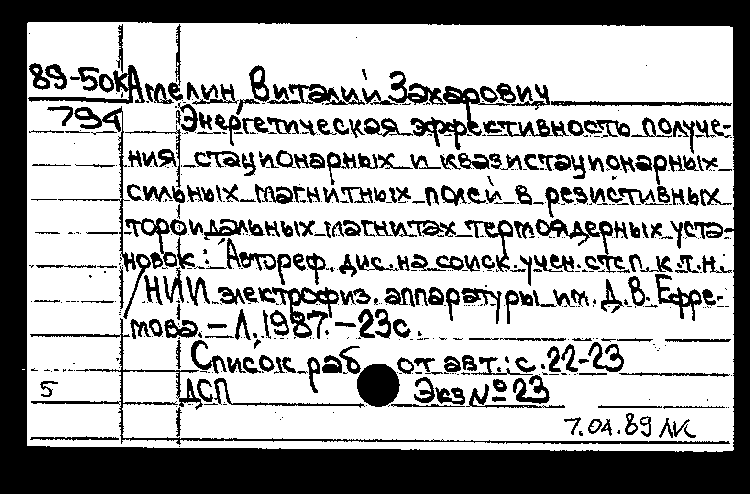 89-50к Амелин, Виталий Захарович
794 Энергетическая эффективность получе-
ния стационарных и квазистационарных
сильных магнитных полей в резистивных
тороидальных магнитах термоядерных уста-
новок: Автореф. дис. на соиск. учен. степ. к.т.н.
/НИИ электрофиз. аппаратуры им. Д.В. Ефре-
мова. – Л. 1987. – 23с.
Список раб от авт.: с. 22-23
5 ДСП Экз № 23
7.04.89 ЛК